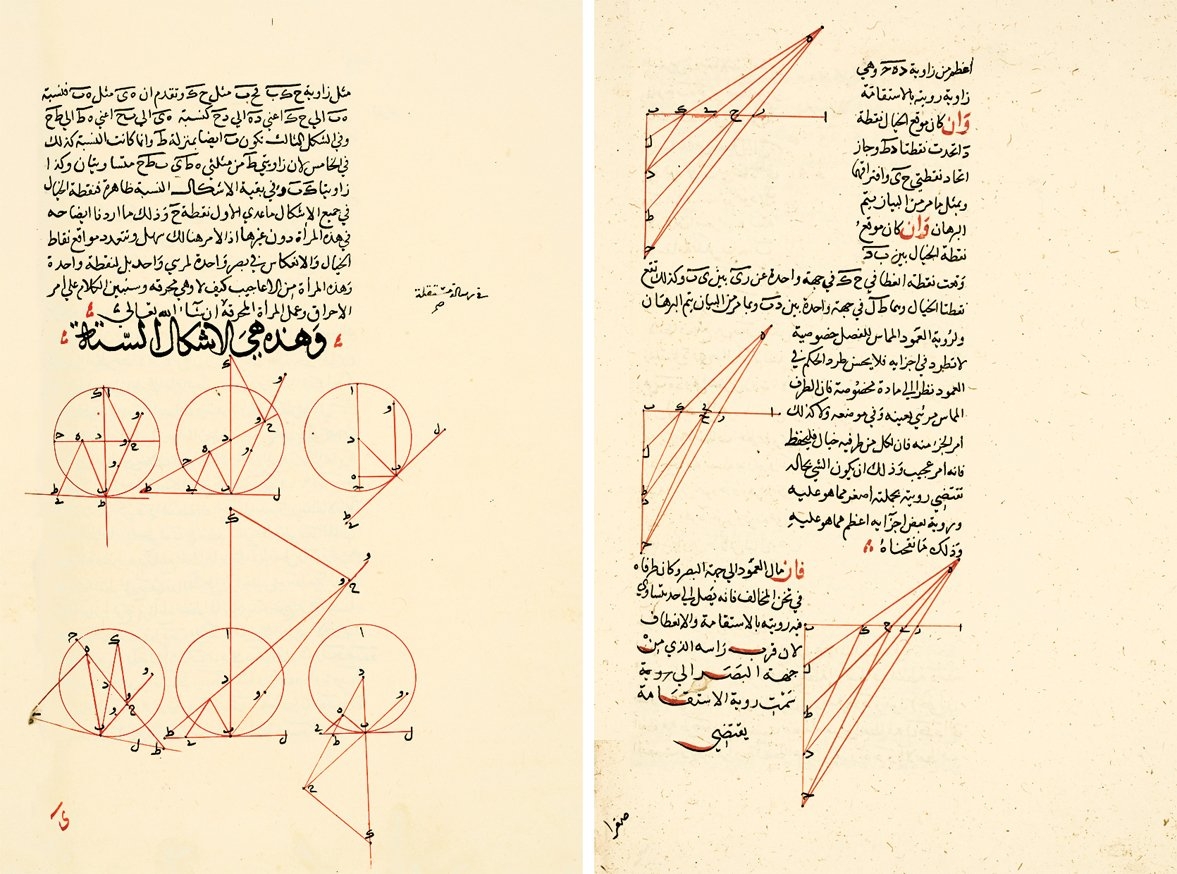 مثل زاوية ح ك ب فح ب مثل ح ك وتقدم ان ه ى مثل ه ب فنسبة
ه ب الي ح ك اعني ده الي دح كنسبة ه ى الي ى ح اعني ه ط الي ط ح
وفي الشكل الثالث نكون ب ايضا بمنزلة ط وانما كانت النسبة كذلك
في الخامس لان زاويتي ط من مثلثي ه ط ى ب ط ح متساويتان وكذا
زاويتا ك ب وفي بقية الاشكال النسبة ظاهرة فنقطة الخيال
في جميع الاشكال ماعدي الاول نقطة ح وذلك ما اردنا ايضاحه
في هذه المرأة دون غيرها اذ الامر هنالك سهل وتتعدد مواقع نقاط
الخيال والانعكاس في بصر واحدة لمرئي واحد بل لنقطة واحدة
وهذه المرأة من الاعاجيب كيف لا وهي محرقه وسنبين الكلام علي امر
الاحراق وعمل المرأة المحرقة ان شاء الله تعالي
في رسالة مستقلة
وهذه هي الاشكال الستة
اعظم من زاوية د ه ح وهي
زاوية رويته بالاستقامة
وان كان موقع الخيال نقطة
د اتحدت نقطتا د ط وجاز
اتحاد نقطتي ح ى وافتراقها
وبمثل ما مر من البيان يتم
البرهان وان كان موقع
نقطة الخيال بين ب د
وقعت نقطة انعطافي ح ك في جهة واحدة عن ر ى بين ى ب وكذلك تقع
نقطتا الخيال وهما ط ل في جهة واحدة بين د ب وبما مر من البيان يتم البرهان
ولرؤية العمود المماس للفصل خصوصية
لا تطرد في اجزايه فلا يحسن طرد الحكم في
العمود نظرا الي مادة مخصوصة فان الطرف
المماس مرئي بعينه وفي موضعه ولا كذلك
امر الجزء منه فان لكل من طرفيه خيال فليحفظ
فانه امر عجيب وذلك ان يكون الشي بحاله
تقتضي روية بجملته اصغر مما هو عليه
وروية بعض اجزايه اعظم مما هو عليه
وذلك ما نقحناه
فان مال العمود الي جهة البصر وكان طرفاه
في ثخن المخالف فانه يصل الي حد يتساوي
فيه رويته بالاستقامة والانعطاف
لان قرب راسه الذي من
جهة البصر الي روية
سمت روية الاستقامة
يقتضي
صغرا